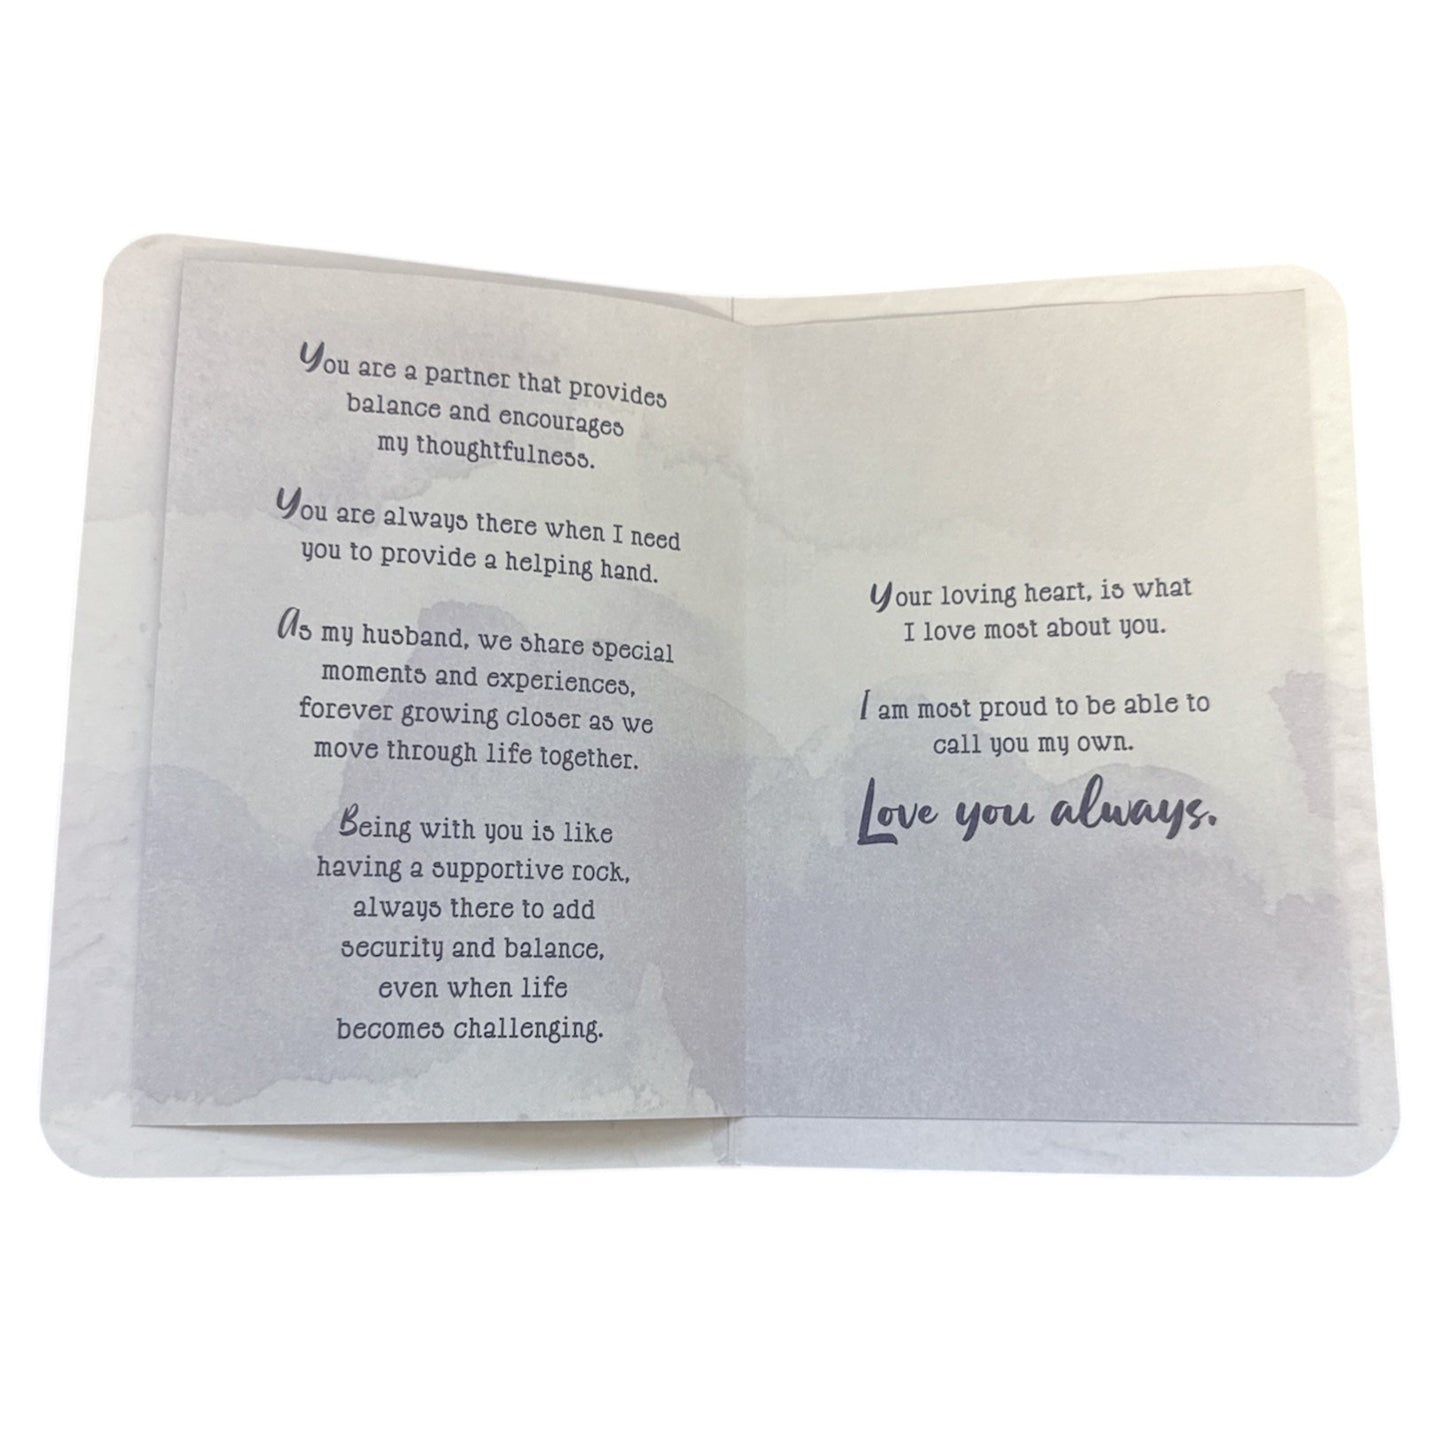 You are a partner that provides
balance and encourages
my thoughtfulness.
You are always there when I need
you to provide a helping hand.
As my husband, we share special
moments and experiences,
forever growing closer as we
move through life together.
Being with you is like
having a supportive rock,
always there to add
security and balance,
even when life
becomes challenging.
Your loving heart, is what
I love most about you.
I am most proud to be able to
call you my own.
Love you always.